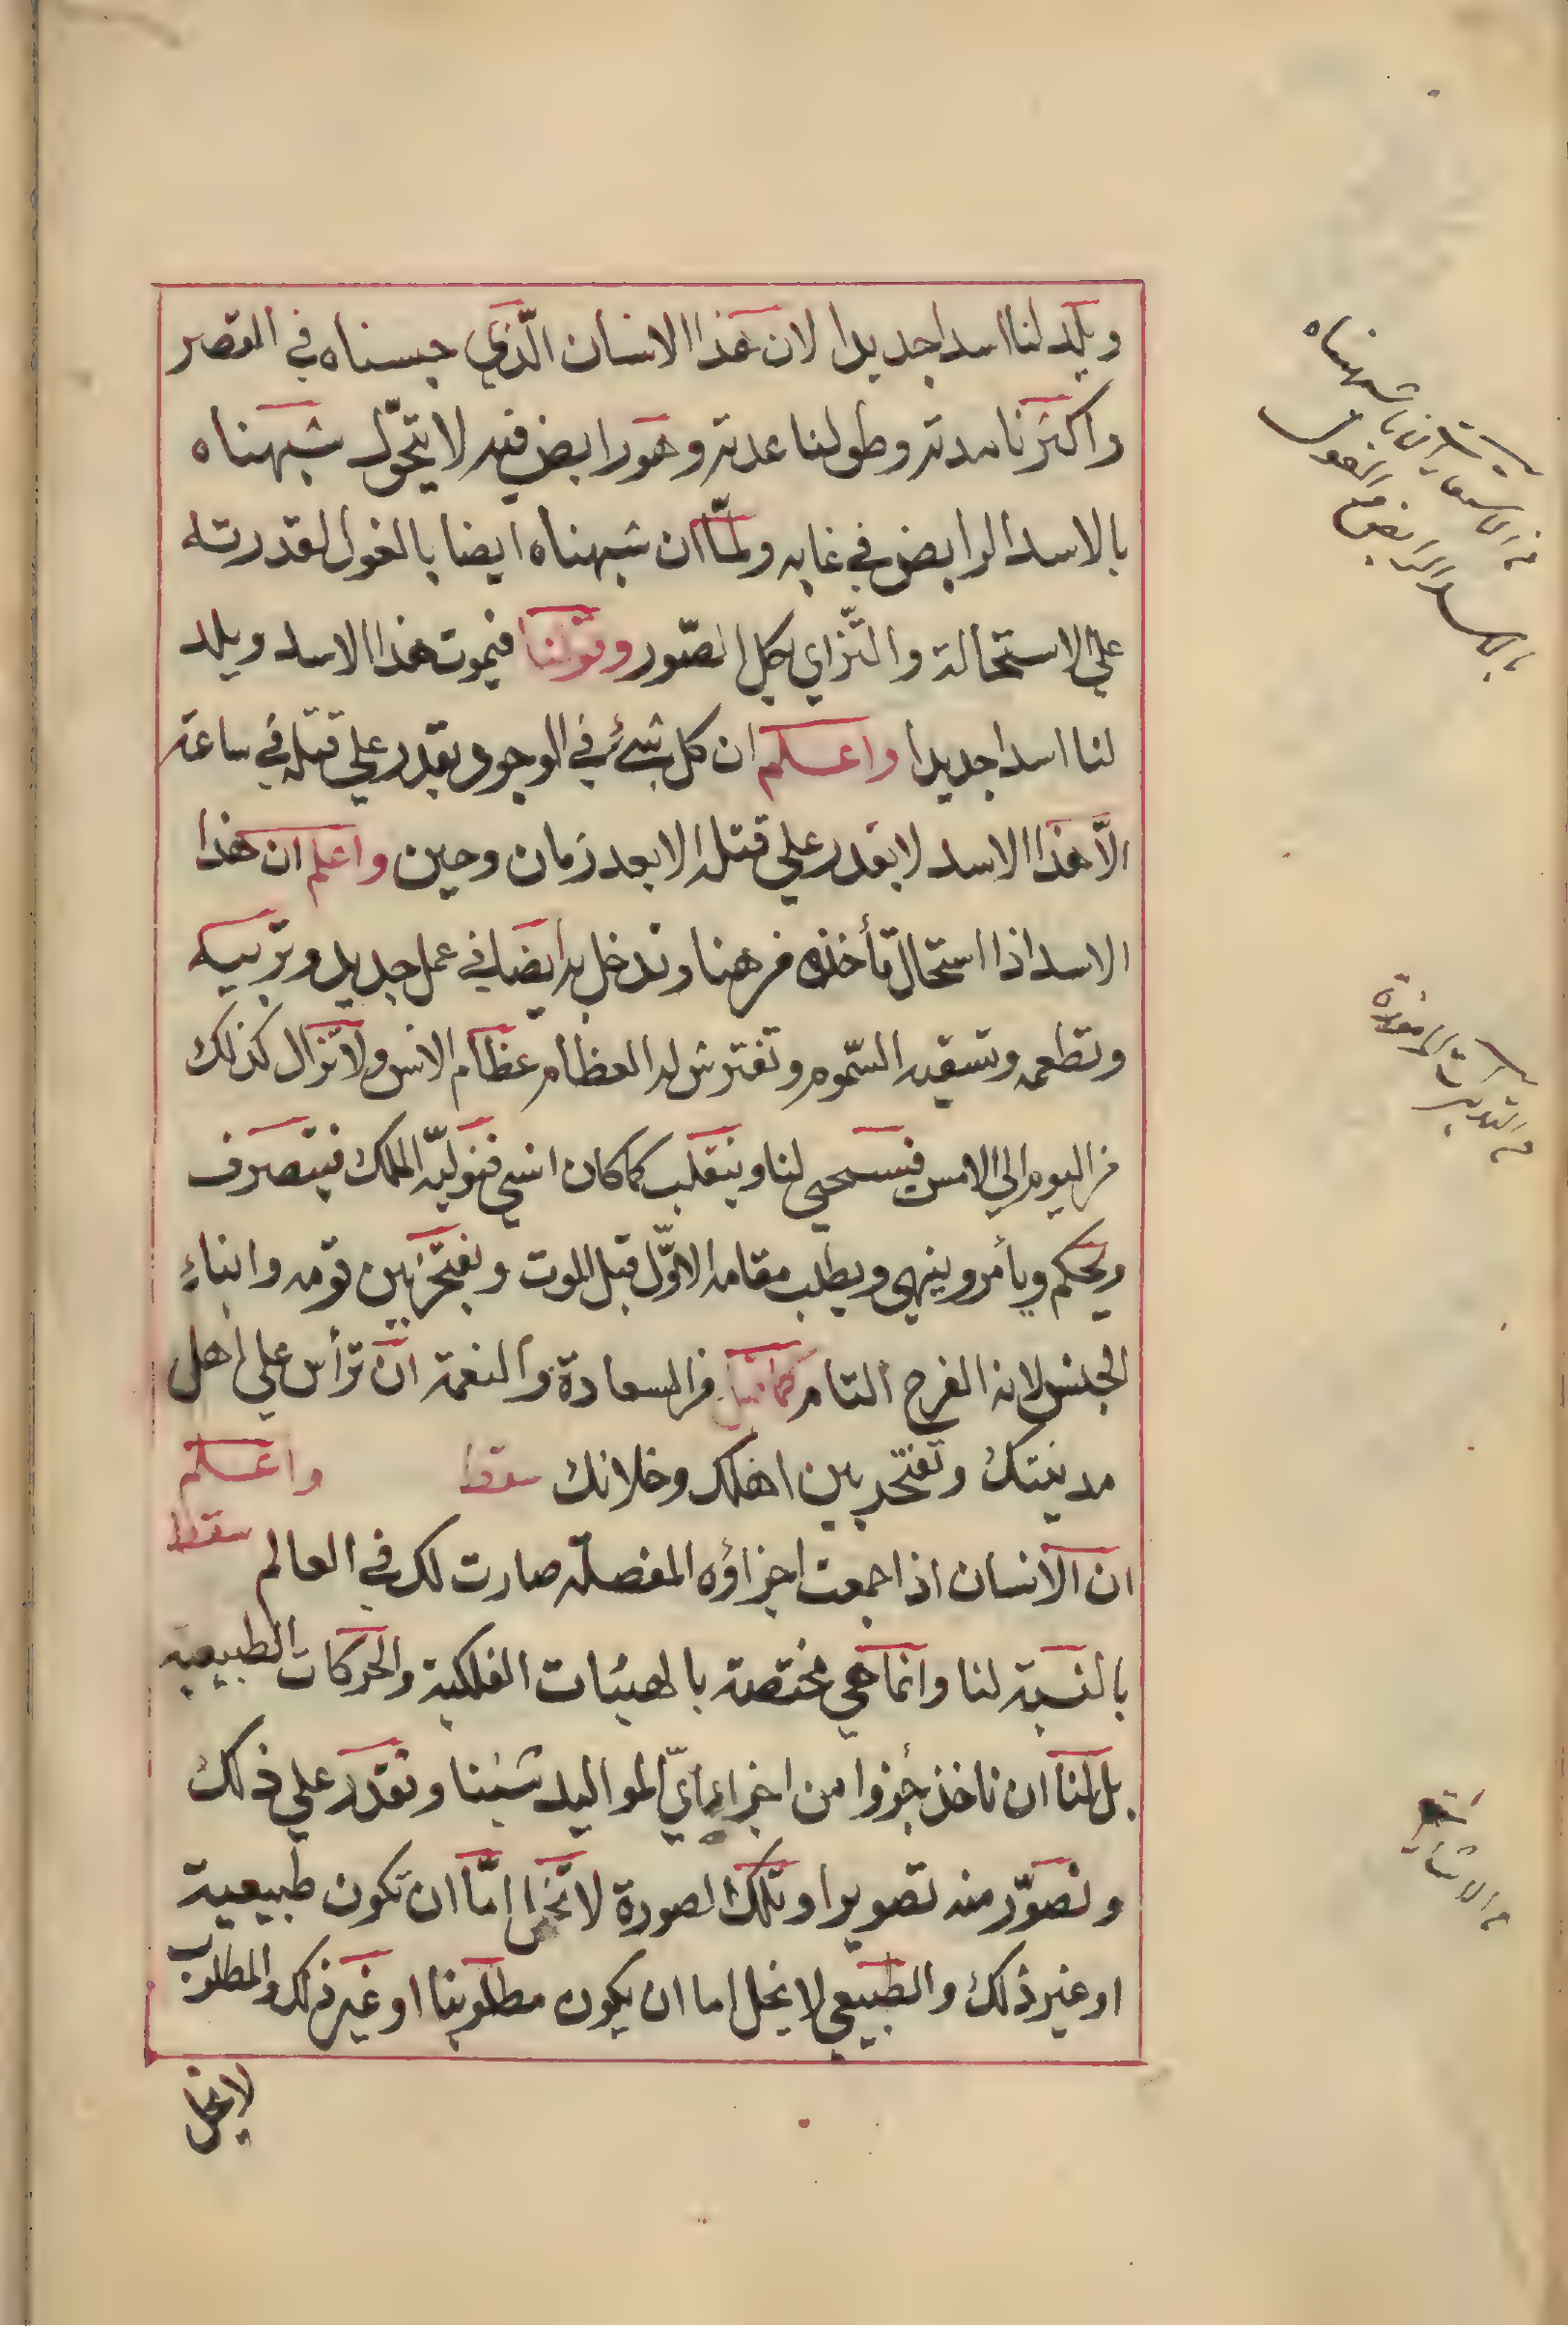 ويلد لنا اسدا جديدا لان هذا الانسان الّذي حبسناه في القصر
واكثرنا مدته وطولنا عدته وهو رابض فيه لا يتحوّل شبهناه
بالاسد الرابض في غابه ولمّا ان شبهناه ايضا بالغول لقدرته
علي الاستحالة والتزاي بكل الصّور وقولنا فيموت هذا الاسد ويلد
لنا اسدا جديدا واعلم ان كل شئ في الوجود يقدر علي قتله في ساعة
الّا هذا الاسد لا يقدر علي قتله الا بعد زمان وحين واعلم ان هذا
الاسد اذا استحال تأخذه من هنا وتدخل به ايضا في عمل جديد وتربيه
وتطعمه وتسقيه السّموم وتفترش له العظام عظام الانس ولا تزال كذلك
من اليوم الي الامس فيستحيي لنا وينقلب كما كان انسي فنوليّه الملك فيتصرف
ويحكم ويأمر وينهي ويطلب مقامه الاوّل قبل الموت ويفتخر بين قومه وابناء
الجنس لانه الفرح التام كما قيل من السعادة والنعمة ان ترأس علي اهل
مدينتك وتفتخر بين اهلك وخلانك سقط واعلم
ان الانسان اذا جمعت اجزاؤه المفصلة صارت لك في العالم سقط
بالنسبة لنا وانما هي مختصة بالهيئات الفلكية والحركات الطبيعية
بل لنا ان ناخذ جزوا من اجزاء ايّ المواليد شئنا ونقدر علي ذلك
ونصوّر منه تصويرا وتلك الصورة لا تخل امّا ان تكون طبيعية
او غير ذلك والطبيعي لا يخل اما ان يكون مطلوبنا او غير ذلك والمطلوب
لا يخل
شبهناه
بالاسد الرابض الغول